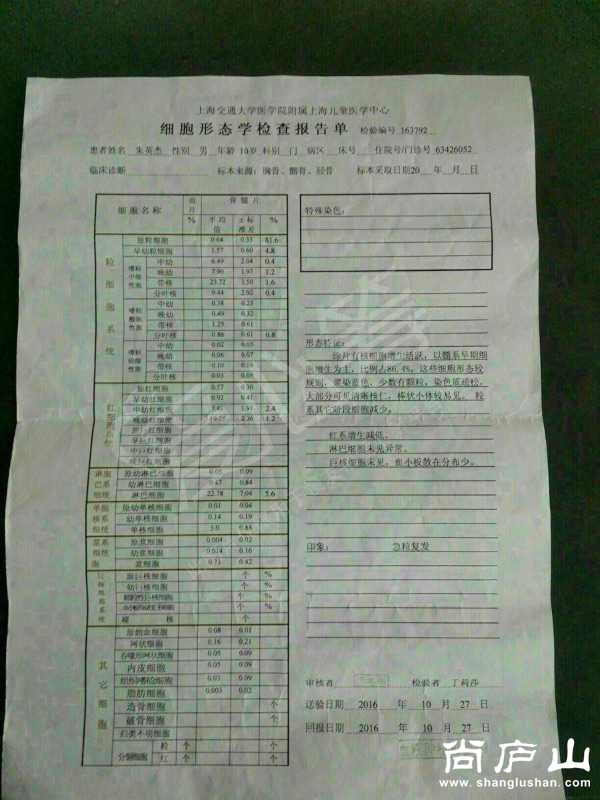 上海交通大学医学院附属上海儿童医学中心
细胞形态学检查报告单 检验编号 163792
患者姓名 朱英杰 性别 男 年龄 10岁 科别 门 病区 床号 住院号/门诊号 63426052
临床诊断 标本来源：胸骨、髂骨、胫骨 标本采取日期20 年 月 日
细胞名称 血片 骨髓片
% 平均值 ±标准差 %
粒细胞系统
原粒细胞 0.64 0.33 81.6
早幼粒细胞 1.57 0.60 4.8
嗜粒中性细胞 中幼 6.49 2.04 0.4
晚幼 7.90 1.97 1.2
带核 23.72 3.50 1.6
分叶核 9.44 2.92 0.4
中幼 0.38 0.23
晚幼 0.49 0.32
带核 1.25 0.61
分叶核 0.86 0.61 0.8
中幼 0.02 0.05
晚幼 0.06 0.07
带核 0.10 0.09
分叶核 0.03 0.05
原红细胞 0.57 0.30
早幼红细胞 0.92 0.41
中幼红细胞 2.4
晚幼红细胞 1.2
淋巴系细胞
原幼淋巴细胞 0.05 0.09
幼淋巴细胞 0.47 0.84
淋巴细胞 22.78 7.04 5.6
原幼单核细胞 0.01 0.04
幼单核细胞 0.14 0.19
单核细胞 3.0 0.88
原浆细胞 0.004 0.02
幼浆细胞 0.16
浆细胞 0.71 0.42
个 %
幼巨核细胞 个 %
个 %
个 %
裸核 个
其它细胞
0.08 0.01
网状细胞 0.16 0.21
0.05 0.09
内皮细胞 0.05 0.09
0.03 0.09
脂肪细胞 0.003 0.02
造骨细胞 个
破骨细胞 个
归类不明细胞
分裂细胞 粒 个 个
红 个 个
特殊染色：
形态特征：
涂片有核细胞增生活跃，以髓系早期细
胞增生为主，比例占86.4%，这些细胞形态较
规则，浆染蓝色，少数有颗粒，染色质疏松，
大部分可见清晰核仁，棒状小体较易见。 粒
系其它阶段细胞减少。
红系增生减低。
淋巴细胞未见异常。
巨核细胞未见，血小板散在分布少。
印象： 急粒复发
审核者 检验者 丁莉莎
送验日期 2016 年 10 月 27 日
回报日期 2016 年 10 月 27 日
尚庐山
www.shanglushan.com